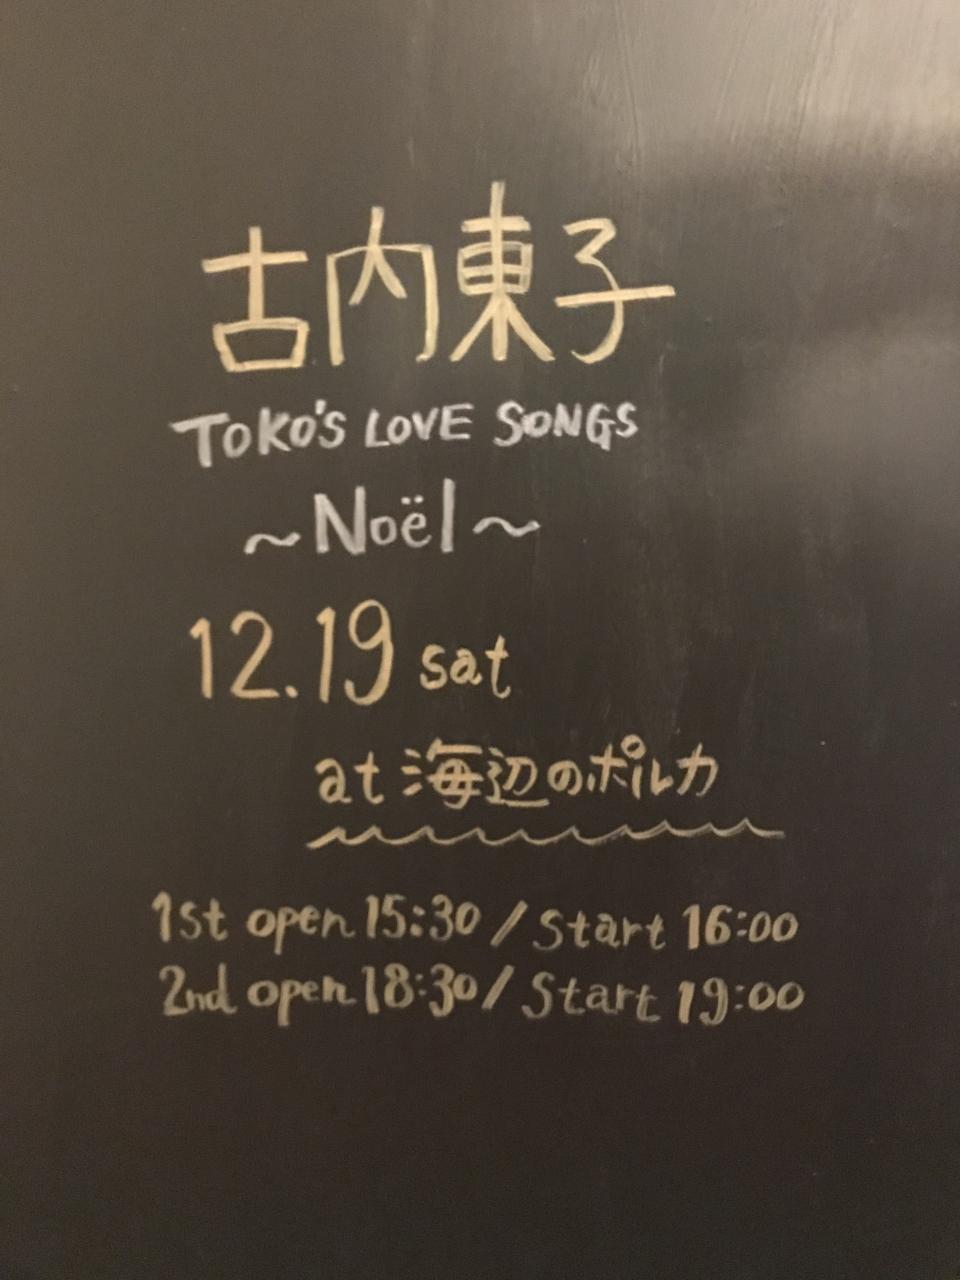 古内東子
TOKO'S LOVE SONGS
～Noël～
12.19 sat
at 海辺のポルカ
1st open 15:30 / Start 16:00
2nd open 18:30 / Start 19:00